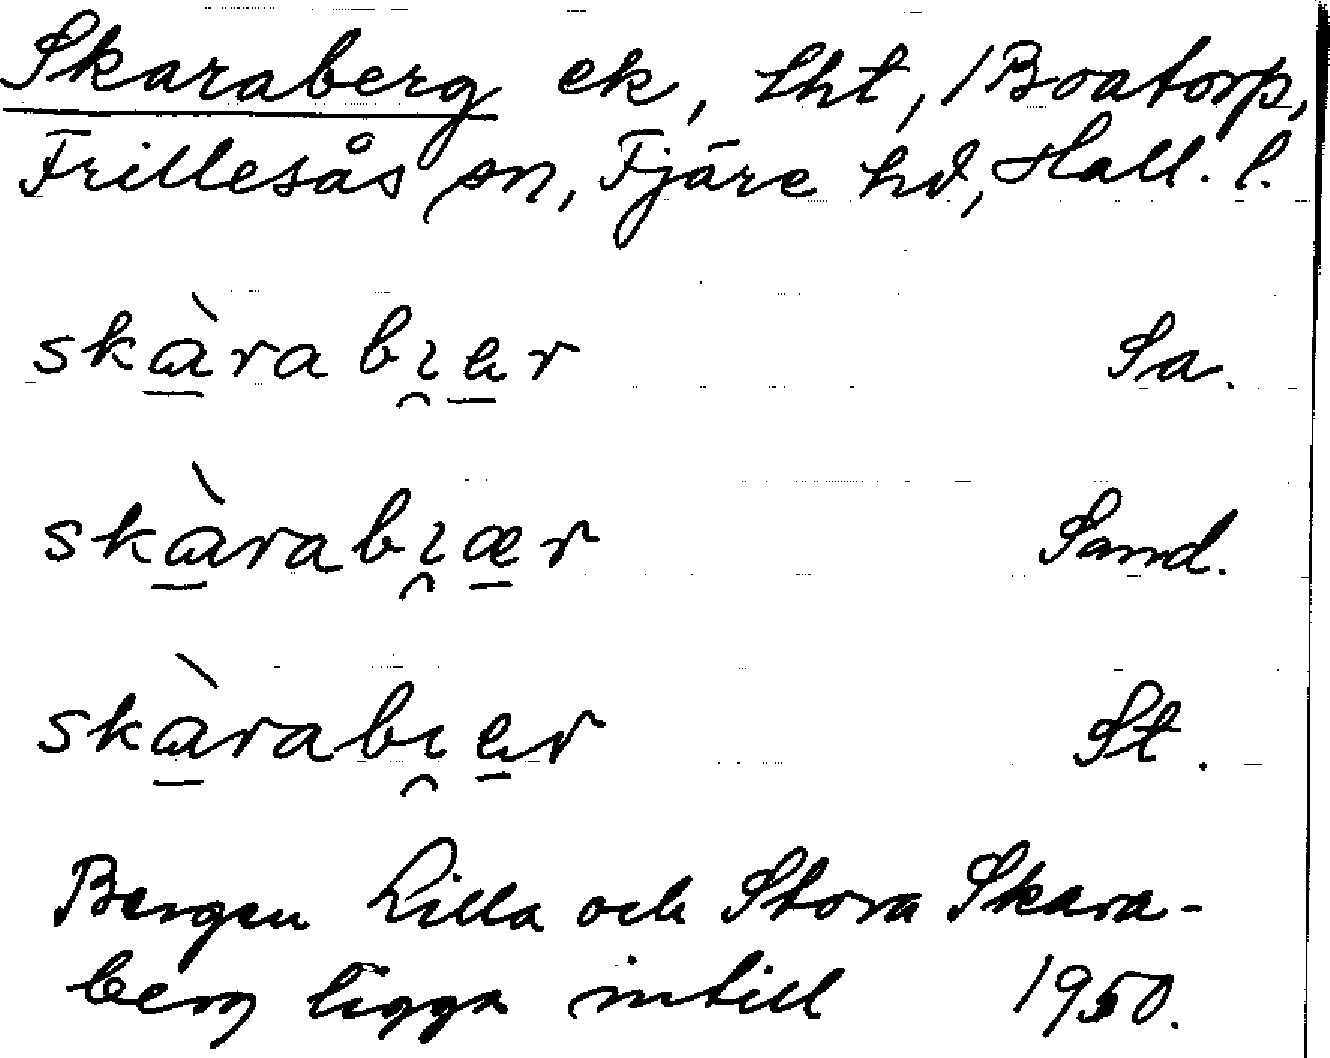 Skaraberg ek, lht, /Boatorp,
Frillesås sn, Fjäre hd, Hall. l.
skàrabı̯ær Sa.
skàrabı̯ær Sand.
skàrabı̯ær St.
Bergen Lilla och Stora Skara-
berg ligga intill 1950.